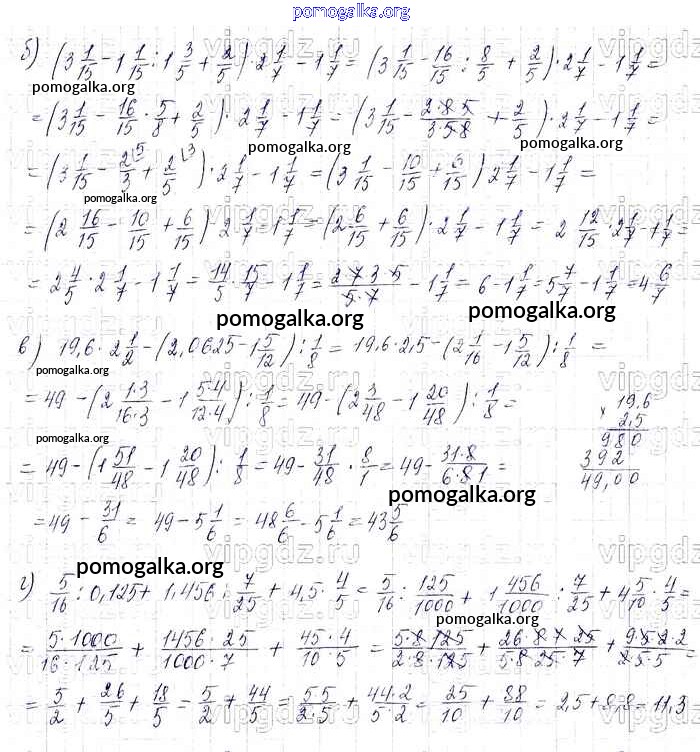 pomogalka.org
б) (3 1/15 - 1 1/15 : 1 3/5 + 2/5) · 2 1/7 - 1 1/7 = (3 1/15 - 16/15 : 8/5 + 2/5) · 2 1/7 - 1 1/7 =
pomogalka.org
= (3 1/15 - 16/15 · 5/8 + 2/5) · 2 1/7 - 1 1/7 = (3 1/15 - 2·8·5/3·5·8 + 2/5) · 2 1/7 - 1 1/7 =
pomogalka.org pomogalka.org
= (3 1/15 - 2/3 + 2/5) · 2 1/7 - 1 1/7 = (3 1/15 - 10/15 + 6/15) 2 1/7 - 1 1/7 =
pomogalka.org
= (2 16/15 - 10/15 + 6/15) · 2 1/7 - 1 1/7 = (2 6/15 + 6/15) · 2 1/7 - 1 1/7 = 2 12/15 · 2 1/7 - 1 1/7 =
= 2 4/5 · 2 1/7 - 1 1/7 = 14/5 · 15/7 - 1 1/7 = 2·7·3·5/5·7 - 1 1/7 = 6 - 1 1/7 = 5 7/7 - 1 1/7 = 4 6/7
pomogalka.org pomogalka.org
в) 19,6 · 2 1/2 - (2,0625 - 1 5/12) : 1/8 = 19,6 · 2,5 - (2 1/16 - 1 5/12) : 1/8 =
pomogalka.org
= 49 - (2 1·3/16·3 - 1 5·4/12·4) : 1/8 = 49 - (2 3/48 - 1 20/48) : 1/8 =
× 19,6
2,5
980
392
49,00
pomogalka.org
= 49 - (1 51/48 - 1 20/48) : 1/8 = 49 - 31/48 · 8/1 = 49 - 31·8/6·8·1 =
pomogalka.org
= 49 - 31/6 = 49 - 5 1/6 = 48 6/6 - 5 1/6 = 43 5/6
pomogalka.org
г) 5/16 : 0,125 + 1,456 : 7/25 + 4,5 · 4/5 = 5/16 : 125/1000 + 1 456/1000 : 7/25 + 4 5/10 · 4/5 =
pomogalka.org
= 5·1000/16·125 + 1456·25/1000·7 + 45·4/10·5 = 5·8·125/2·8·125 + 26·8·7·25/5·8·25·7 + 9·5·2·2/2·5·5 =
= 5/2 + 26/5 + 18/5 = 5/2 + 44/5 = 5·5/2·5 + 44·2/5·2 = 25/10 + 88/10 = 2,5 + 8,8 = 11,3
vipgdz.ru